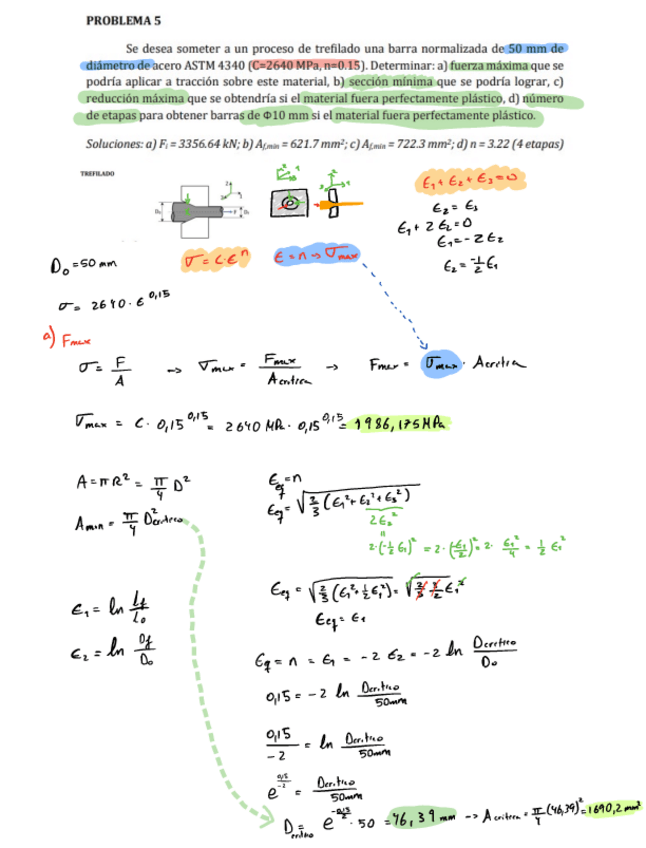 PROBLEMA 5
Se desea someter a un proceso de trefilado una barra normalizada de 50 mm de
diámetro de acero ASTM 4340 (C=2640 MPa, n=0.15). Determinar: a) fuerza máxima que se
podría aplicar a tracción sobre este material, b) sección mínima que se podría lograr, c)
reducción máxima que se obtendría si el material fuera perfectamente plástico, d) número
de etapas para obtener barras de Φ10 mm si el material fuera perfectamente plástico.
Soluciones: a) Fi = 3356.64 kN; b) Af,min = 621.7 mm²; c) Af,min = 722.3 mm²; d) n = 3.22 (4 etapas)
TREFILADO
ϵ₁ + ϵ₂ + ϵ₃ = 0
ϵ₂ = ϵ₃
ϵ₁ + 2 ϵ₂ = 0
ϵ₁ = -2 ϵ₂
ϵ₂ = -1/2 ϵ₁
D₀ = 50 mm
σ = C·ϵⁿ
ϵ = n → σmax
σ = 2640 · ϵ^0,15
a) Fmax
σ = F/A → σmax = Fmax/Acritica → Fmax = σmax · Acritica
σmax = C · 0,15^0,15 = 2640 MPa · 0,15^0,15 = 1986,175 MPa
A = πR² = π/4 D²
Amin = π/4 D²critico
ϵeq = n
ϵeq = √(2/3 (ϵ₁² + ϵ₂² + ϵ₃²))
2ϵ₂²
=
2·(-1/2 ϵ₁)² = 2·(-ϵ₁/2)² = 2· ϵ₁²/4 = 1/2 ϵ₁²
ϵeq = √(2/3 (ϵ₁² + 1/2 ϵ₁²)) = √(2/3 3/2 ϵ₁²)
ϵeq = ϵ₁
ϵ₁ = ln Lf/L₀
ϵ₂ = ln Df/D₀
ϵq = n = ϵ₁ = -2 ϵ₂ = -2 ln Dcritico/D₀
0,15 = -2 ln Dcritico/50mm
0,15/-2 = ln Dcritico/50mm
e^(0,15/-2) = Dcritico/50mm
Dcritico = e^(-0,15/2) · 50 = 46,39 mm → Acritica = π/4 (46,39)² = 1690,2 mm²